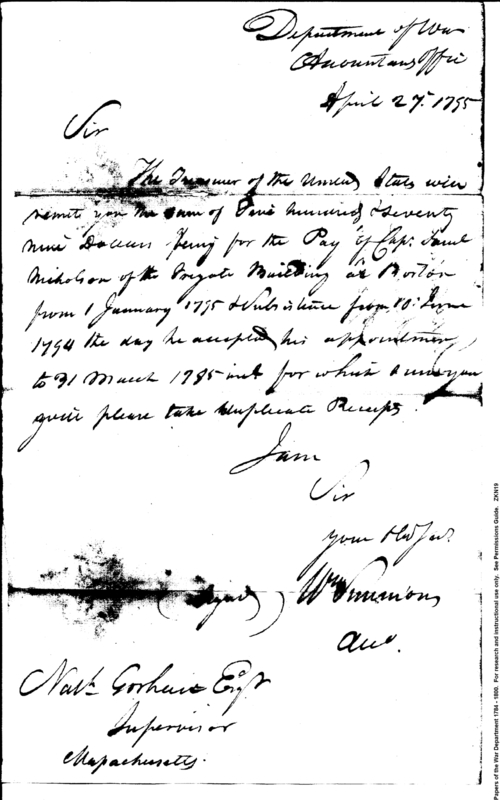 Department of War
Accountants Office
April 27th 1795
Sir
The Treasurer of the United States will
remit you the sum of Five hundred & Seventy
nine Dollars being for the Pay of Capt. Saml
Nicholson of the Frigate Building at Boston
from 1 January 1795 & Subsistence from 10th June
1794 the day he accepted his appointment
to 31 March 1795 for which
please take duplicate Receipts.
I am
Sir
your Obd Sert.
(Signed) Wm Simmons
Acct.
Nathl Gorham Esqr
Supervisor
Massachusetts.
Papers of the War Department 1784 - 1800. For research and instructional use only. See Permissions Guide. ZKN19